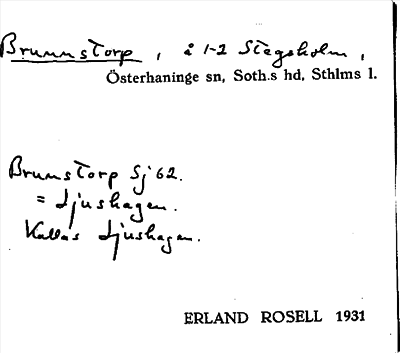 Brunnstorp, å 1-2 Stegsholm,
Österhaninge sn, Soth.s hd, Sthlms l.
Brunnstorp Sj 62.
= Ljushagen.
Kallas Ljushagen.
ERLAND ROSELL 1931